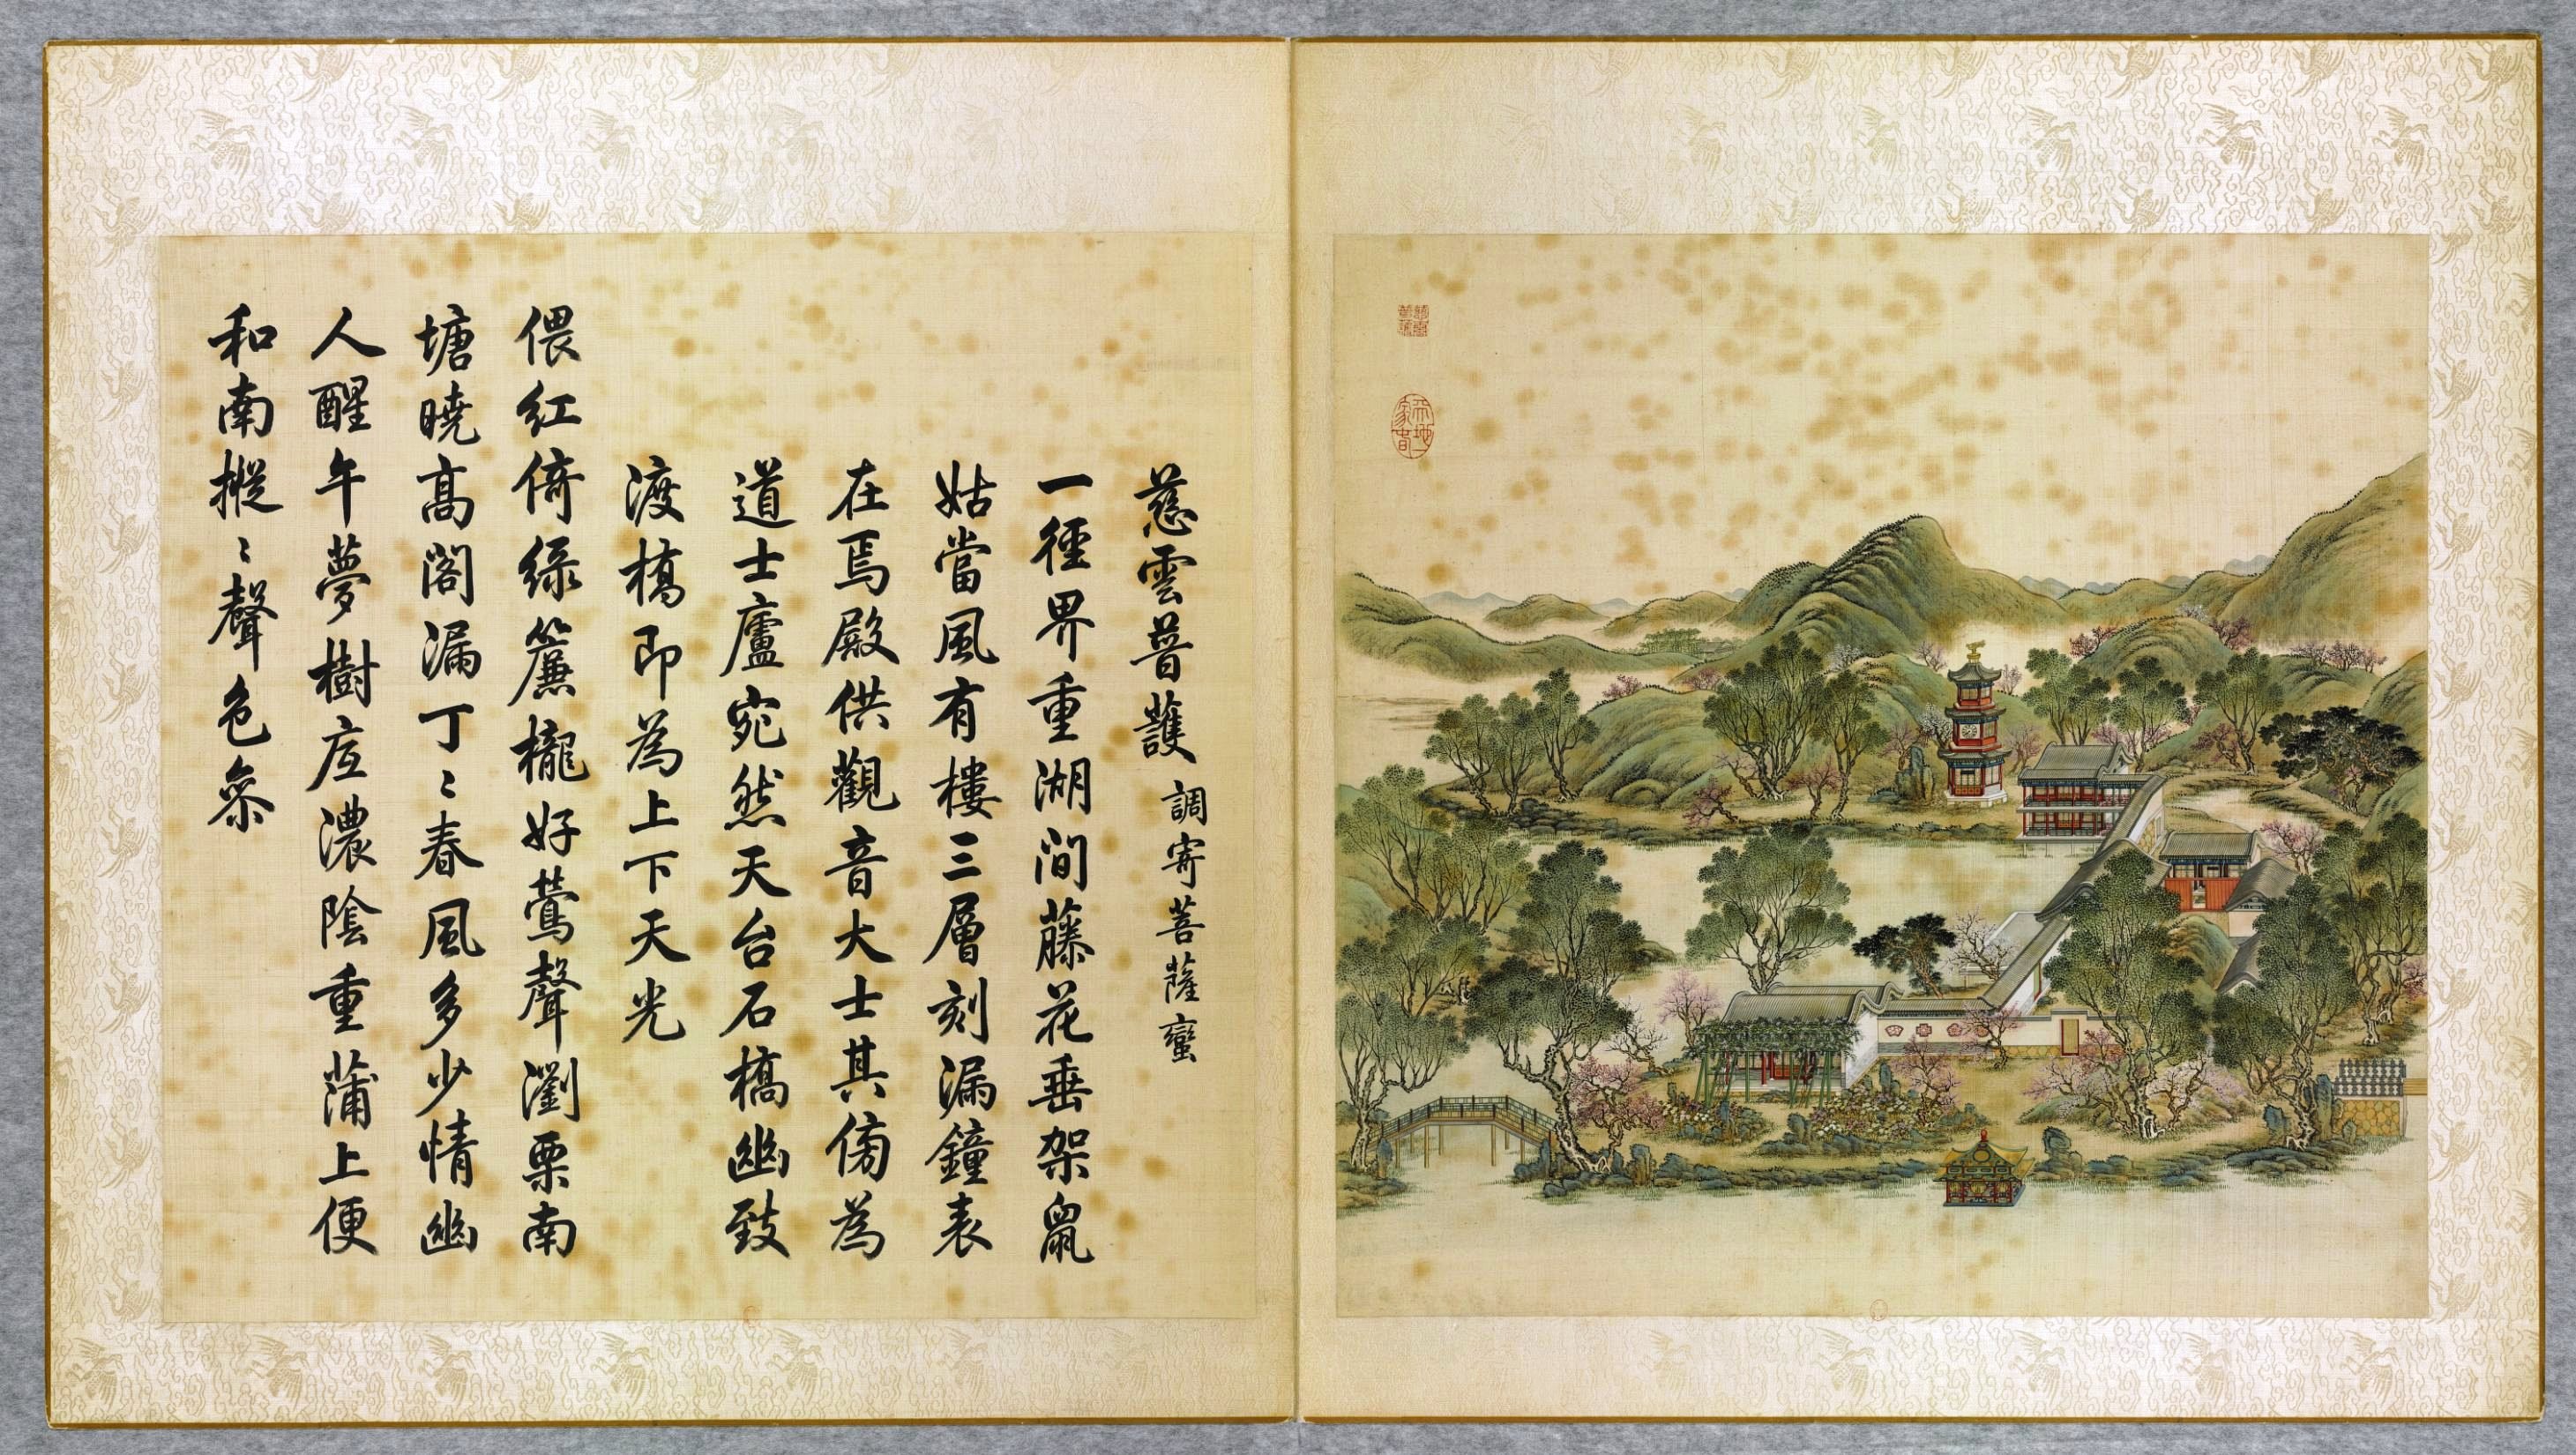 慈雲普護
天地一家春
慈雲普護 調寄菩薩蠻
一徑界重湖間藤花垂架鼠
姑當風有樓三層刻漏鐘表
在焉殿供觀音大士其傍為
道士廬宛然天台石橋幽致
渡橋即為上下天光
偎紅倚綠簾櫳好鶯聲瀏栗南
塘曉高閣漏丁〻春風多少情幽
人醒午夢樹底濃陰重蒲上便
和南摐〻聲色參